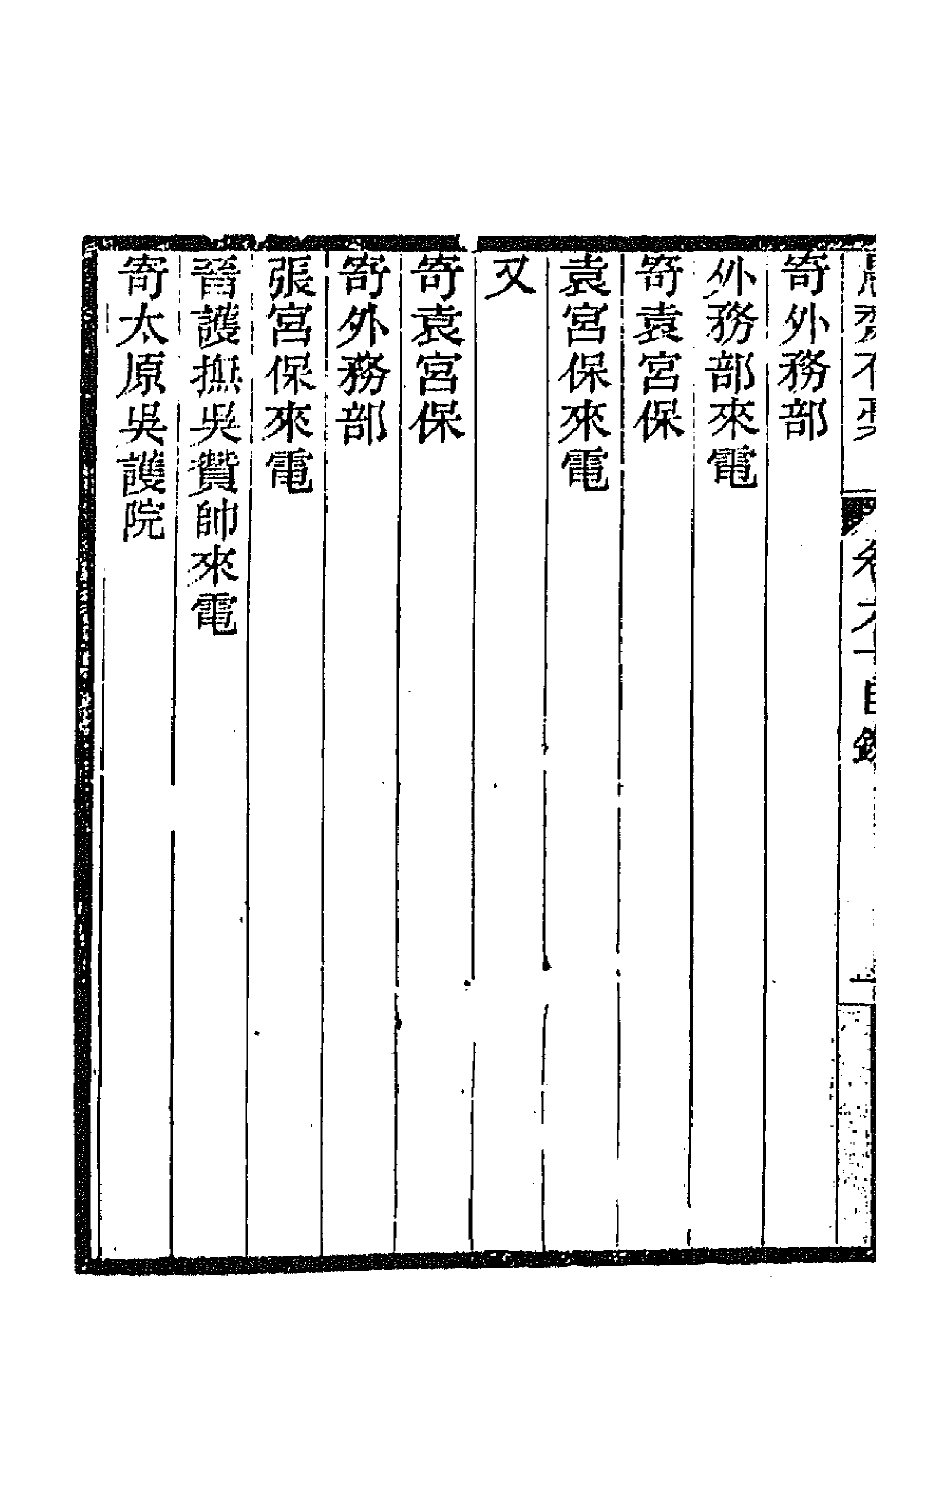 寄外務部
外務部來電
寄袁宮保
袁宮保來電
又
寄袁宮保
寄外務部
張宮保來電
晉護撫吳贊帥來電
寄太原吳護院